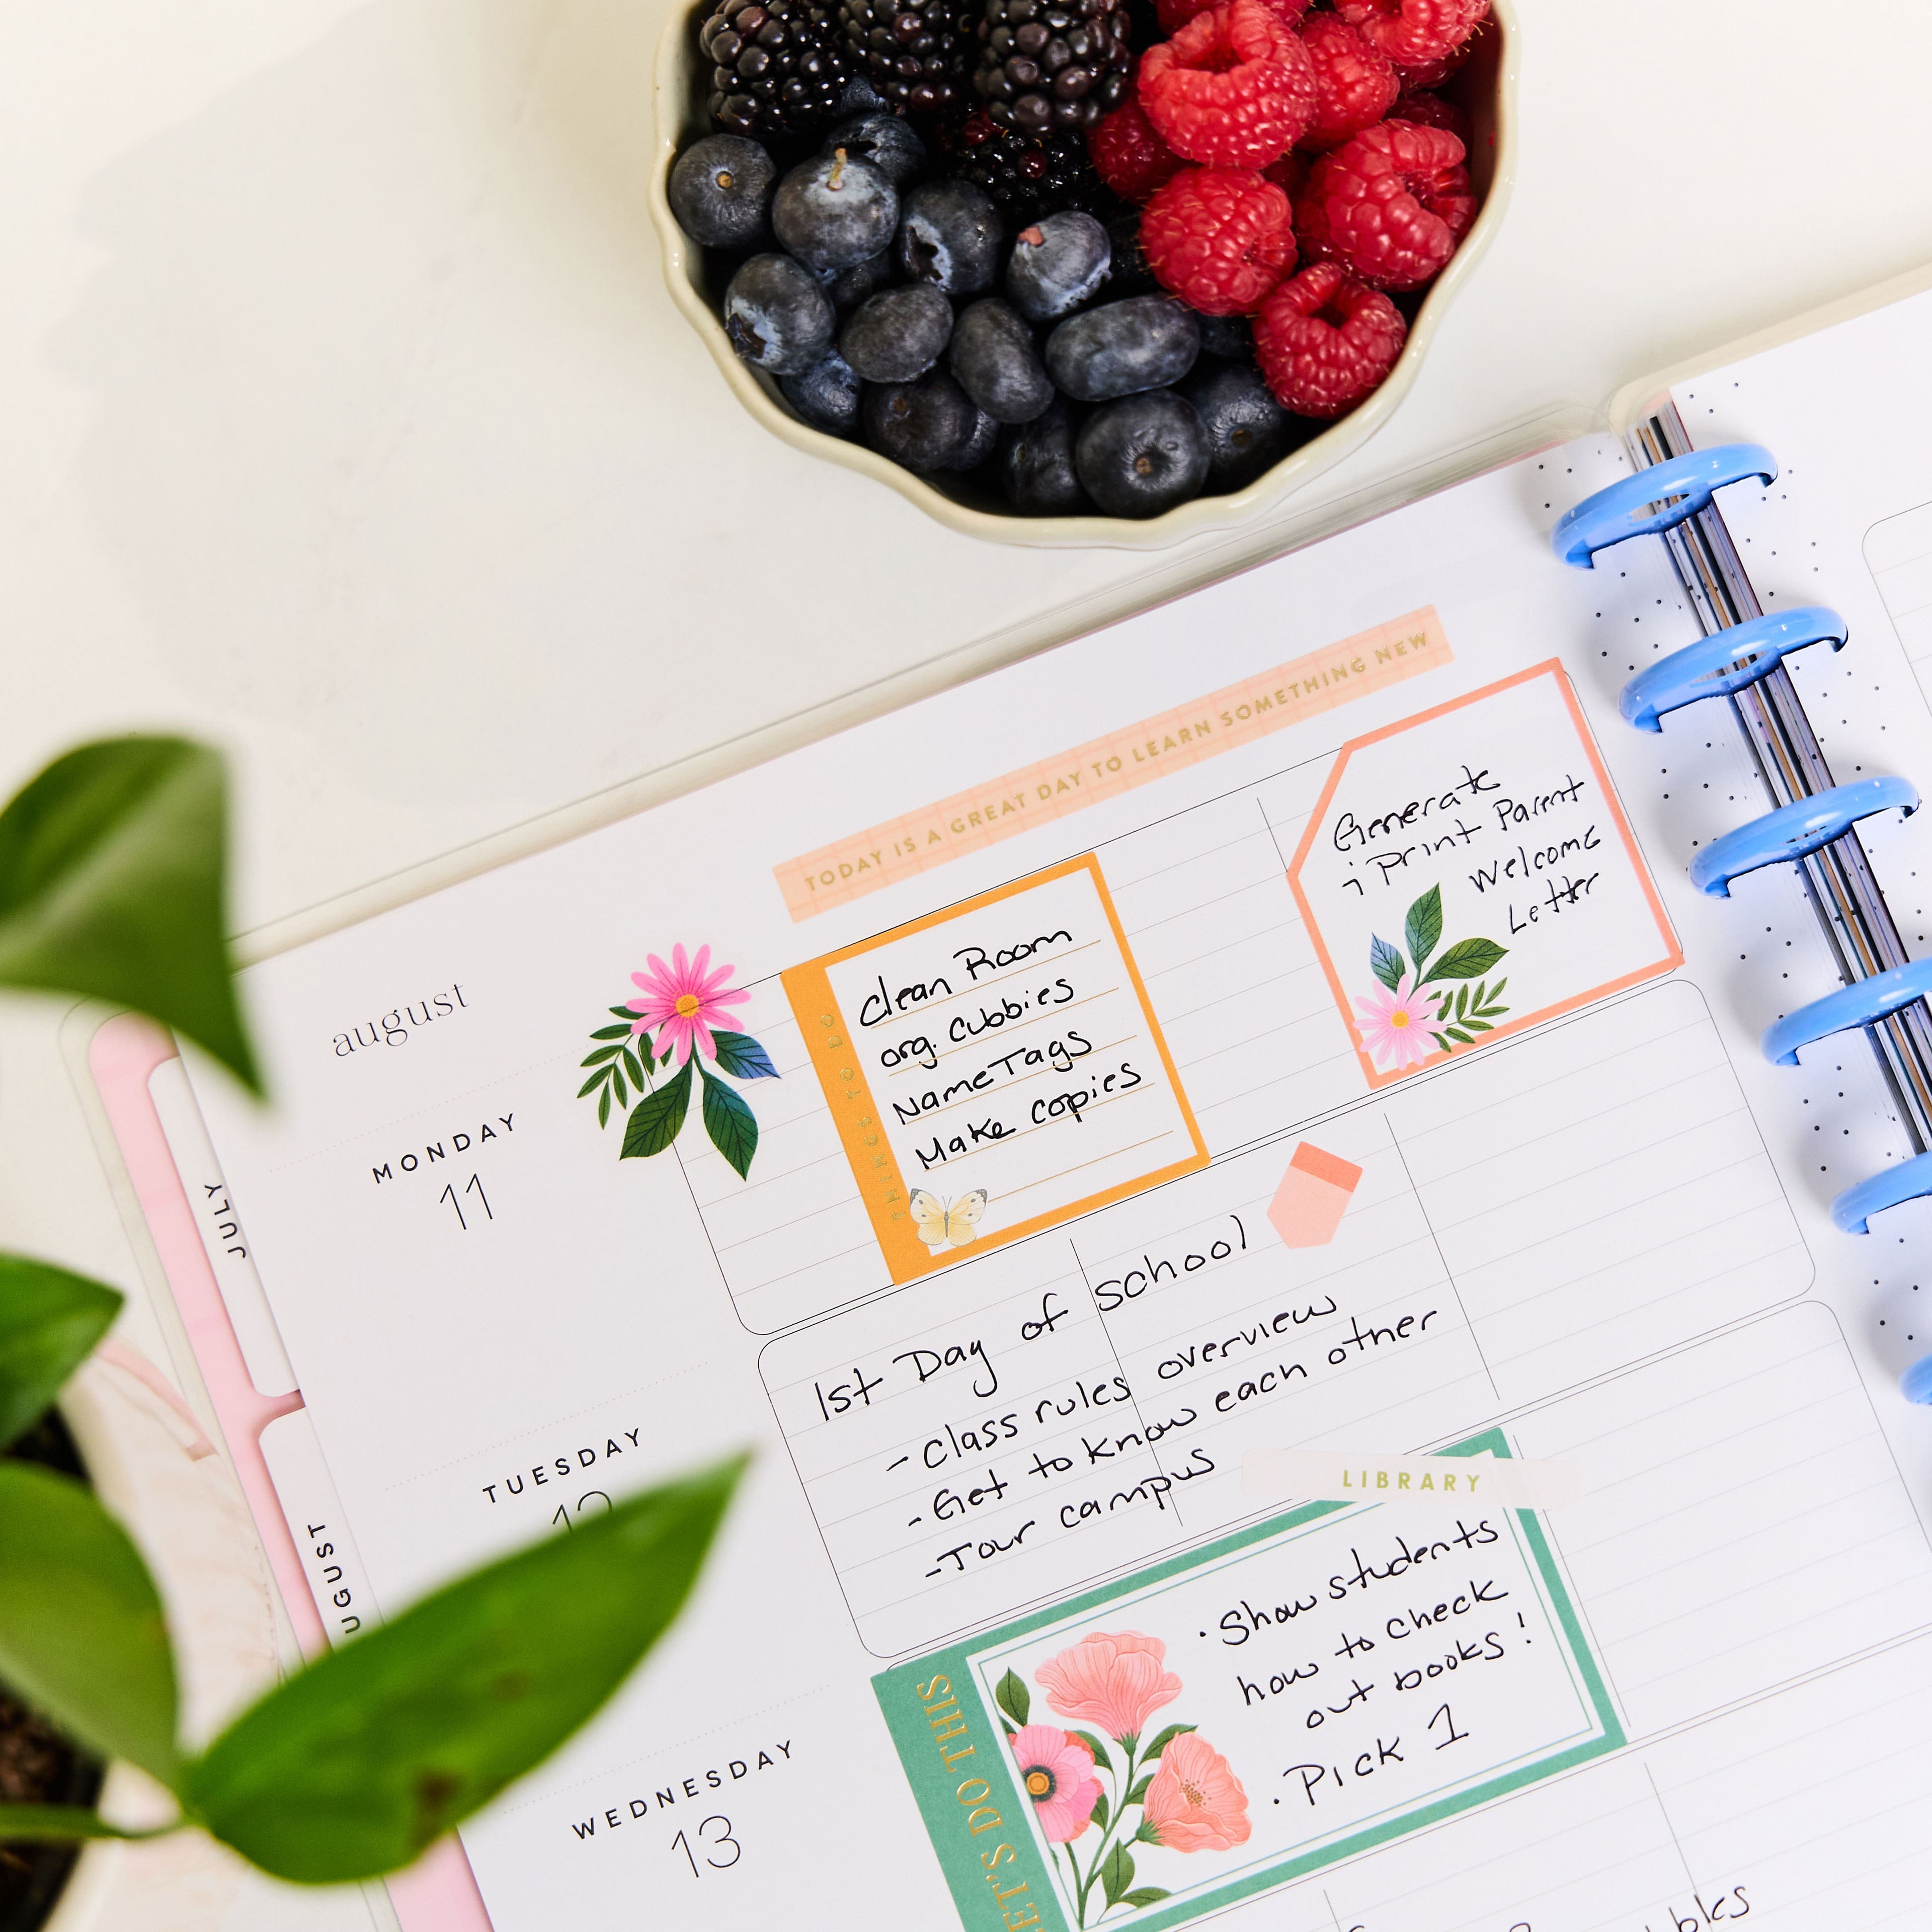 TODAY IS A GREAT DAY TO LEARN SOMETHING NEW
august
JULY
MONDAY
11
THINGS TO DO
Clean Room
org. Cubbies
Name Tags
Make copies
Generate
& Print Parent
Welcome
Letter
TUESDAY
12
1st Day of school
- Class rules overview
- Get to know each other
- Tour campus
AUGUST
WEDNESDAY
13
LIBRARY
LET'S DO THIS
· Show students
how to check
out books!
· Pick 1